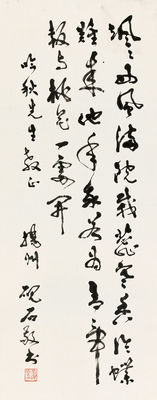 飒飒西风满院栽蕊寒香冷蝶
难来他年我若为青帝
报与桃花一处开
吟秋先生教正
扬州 砚石敬书